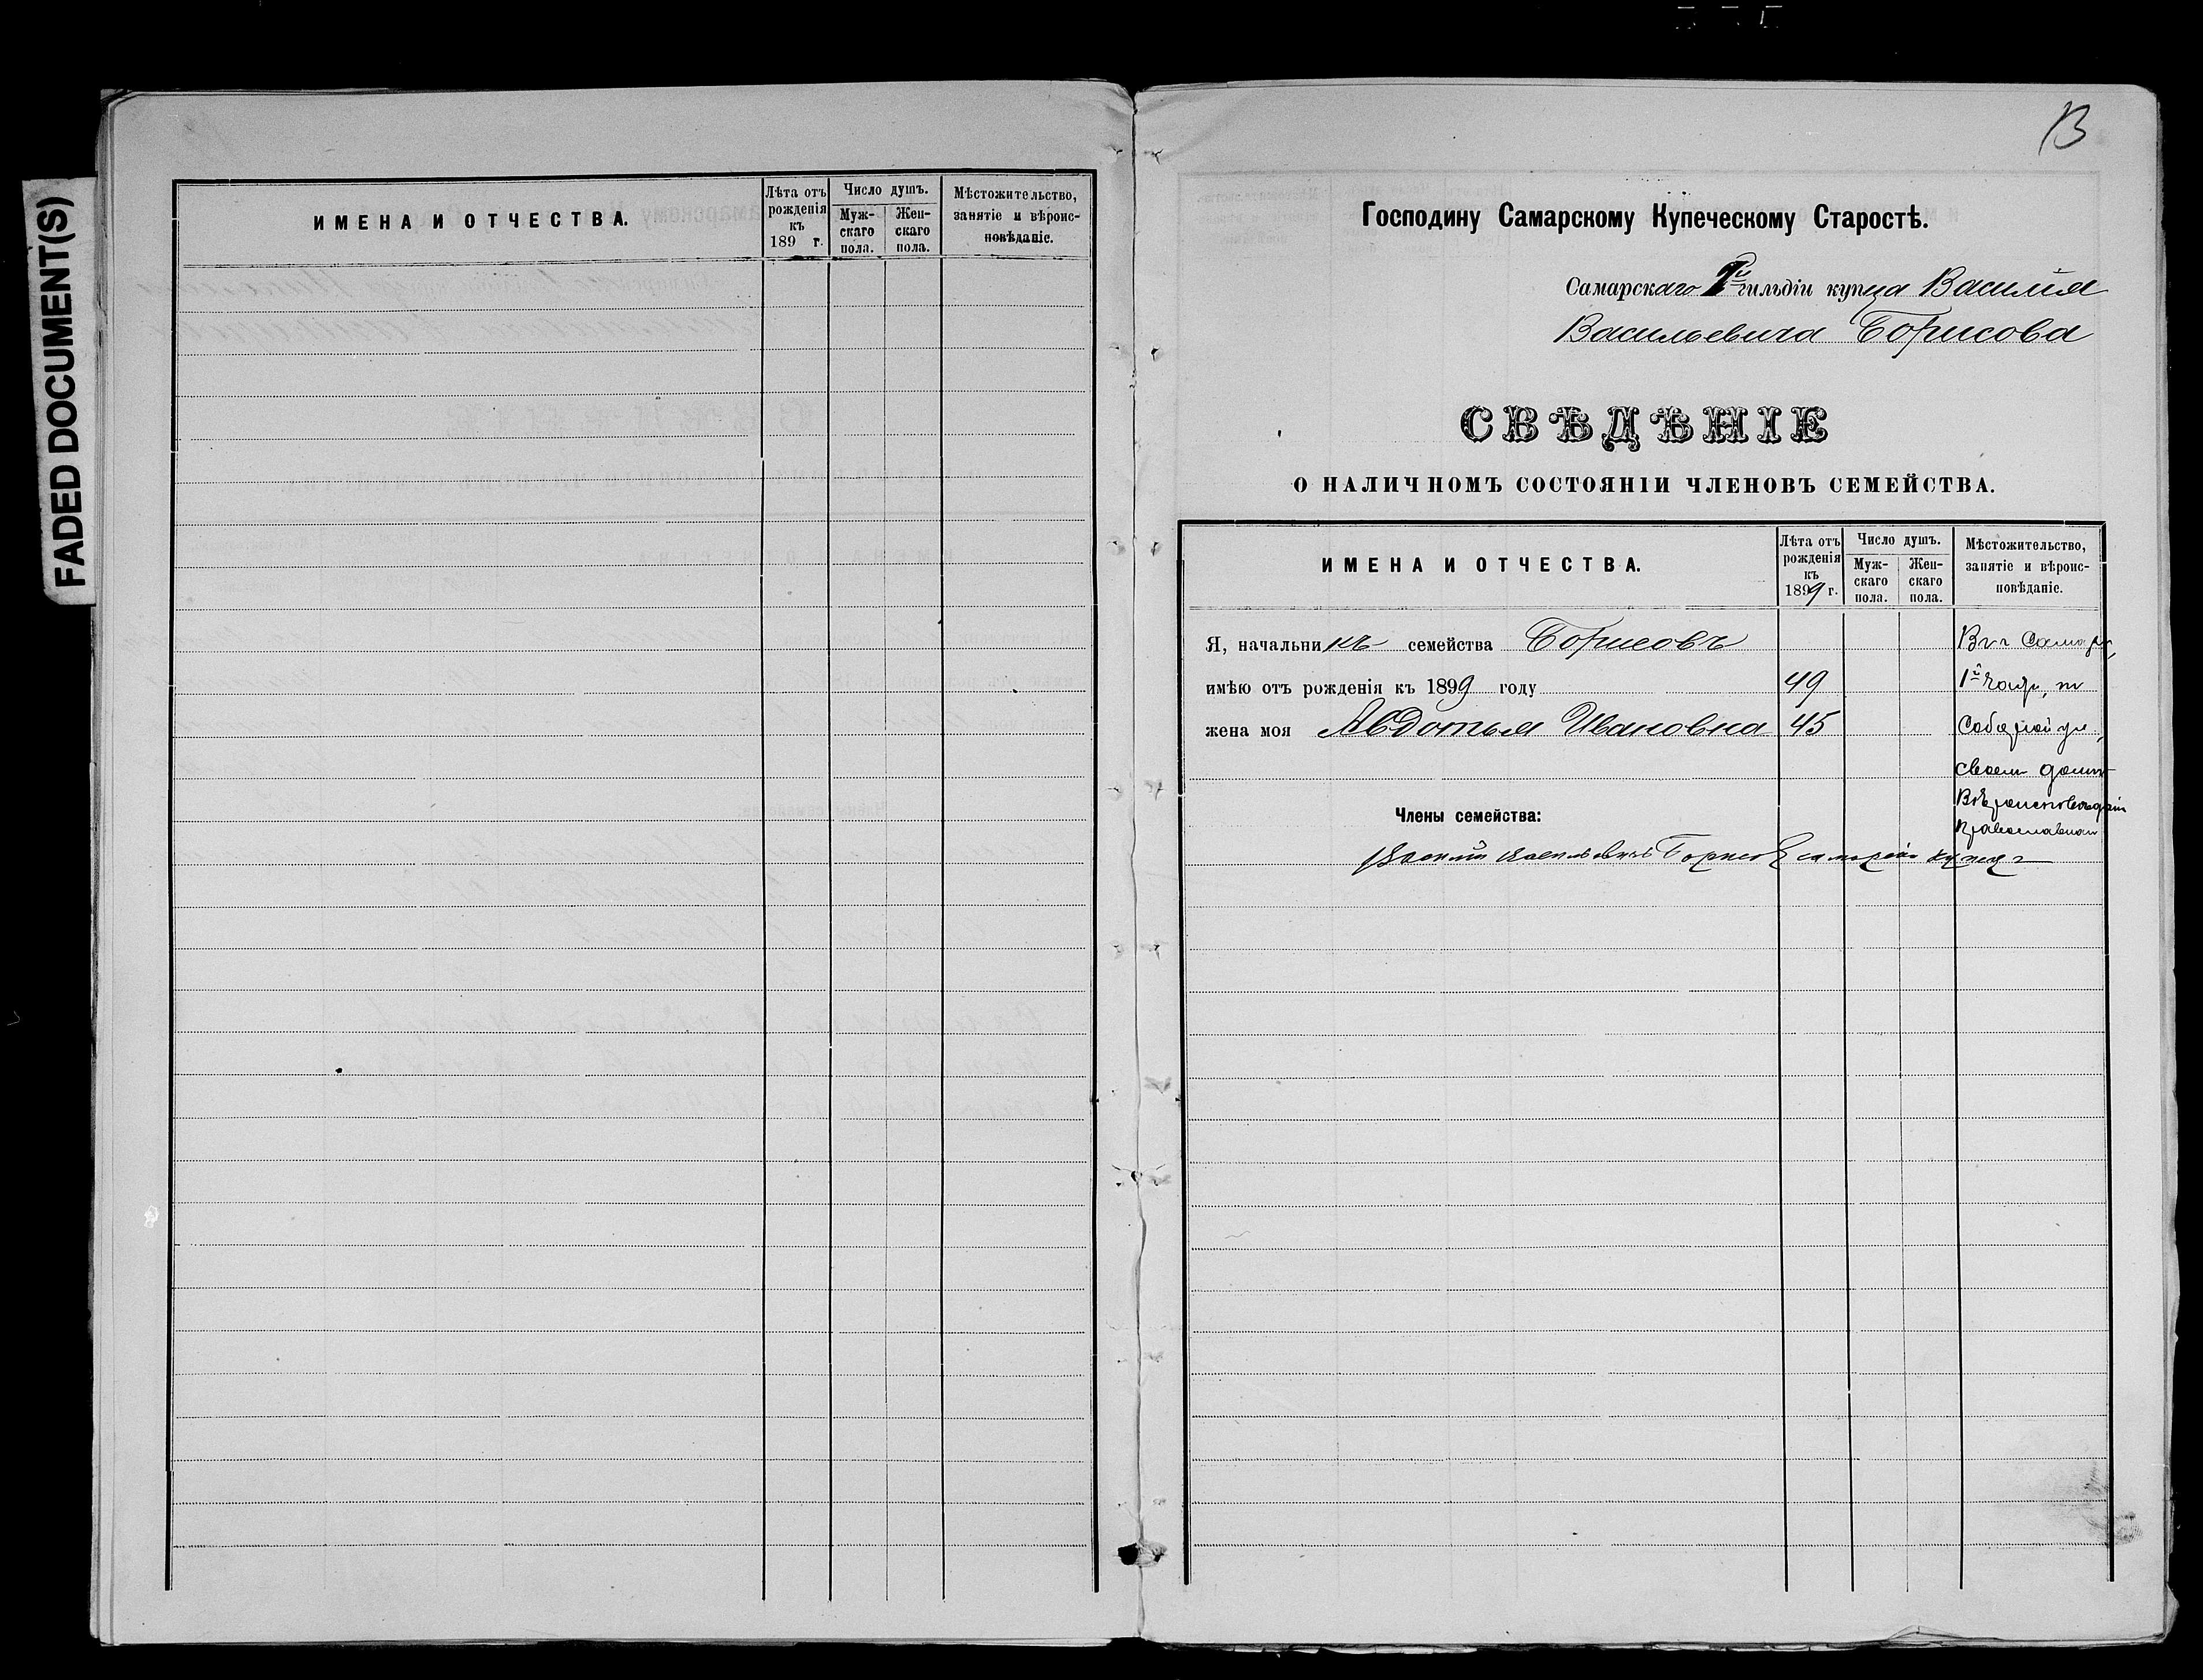 FADED DOCUMENT(S)
ИМЕНА И ОТЧЕСТВА.
Лѣта отъ рожденія къ 189 г.
Число душъ.
Мужскаго пола.
Женскаго пола.
Мѣстожительство, занятіе и вѣроисповѣданіе.
13
Господину Самарскому Купеческому Старостѣ.
Самарскаго гильдіи купца Василія
Васильевича Борисова
СВѢДѢНІЕ
О НАЛИЧНОМЪ СОСТОЯНІИ ЧЛЕНОВЪ СЕМЕЙСТВА.
ИМЕНА И ОТЧЕСТВА.
Лѣта отъ рожденія къ 1899 г.
Число душъ.
Мужскаго пола.
Женскаго пола.
Мѣстожительство, занятіе и вѣроисповѣданіе.
Я, начальникъ семейства Борисовъ
имѣю отъ рожденія къ 1899 году 49
жена моя Авдотья Ивановна 45
Въ г. Самарѣ,
1й части, по
Соборной ул.,
своем домѣ
Вѣроисповѣданія
Православнаго
Члены семейства:
Василий Васильевичъ Борисовъ самарский купецъ